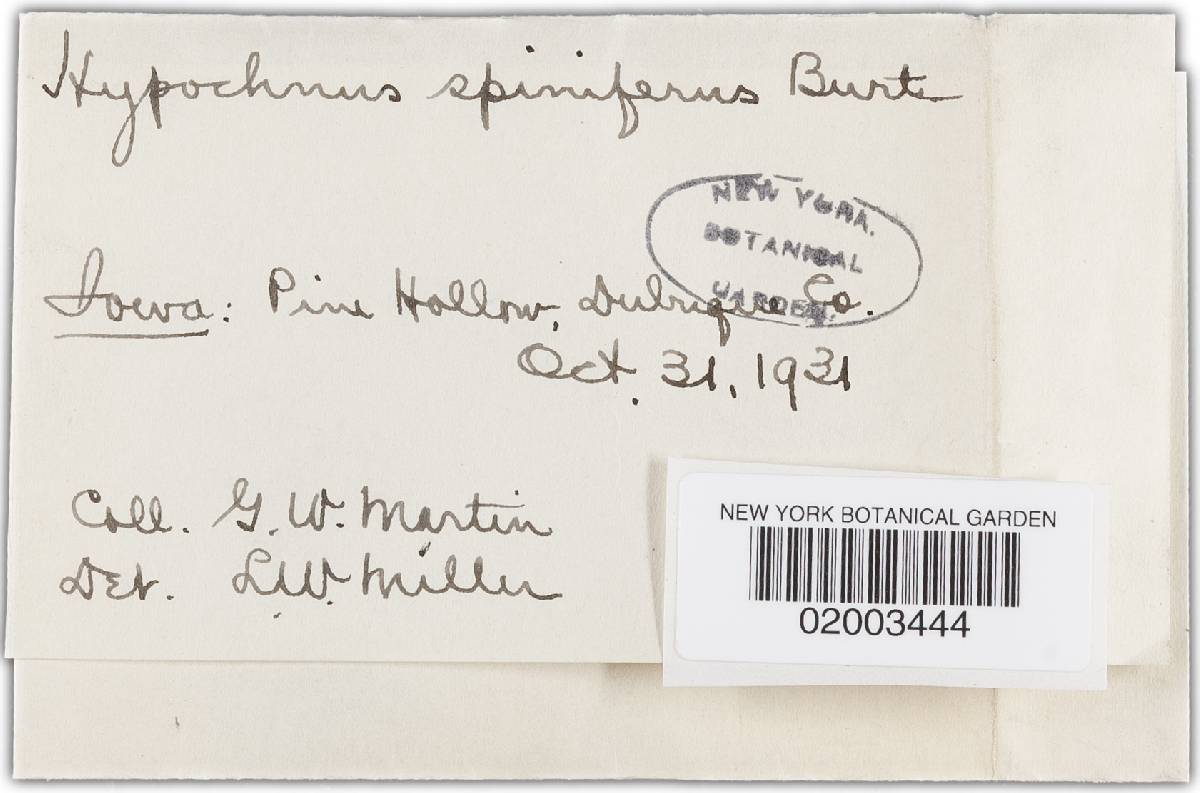 Hypochnus spiniferus Burt
NEW YORK
BOTANICAL
GARDEN.
Iowa: Pine Hollow, Dubuque Co.
Oct. 31, 1931
Coll. G. W. Martin
Det. L.W. Miller
NEW YORK BOTANICAL GARDEN
02003444